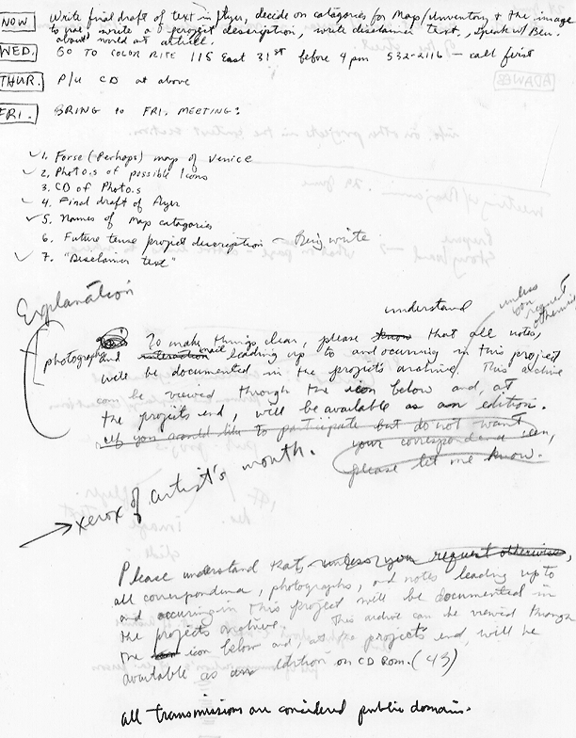 NOW Write final draft of text in flyer, decide on catagories for Map/Inventory & the image
to use, write a project description, write disclaimer text, speak w/ Ben.
about world at atthill.
WED. GO TO COLOR RITE 115 East 31st before 4 pm 532-2116 — call first
THUR. P/U CD at above
FRI. BRING to FRI. MEETING:
✓1. Forse (Perhaps) map of Venice
✓2. Photos of possible Icons
3. CD of Photos
✓4. Final draft of flyer
✓5. Names of Map catagories
6. Future tense project description —
✓7. "Disclaimer text"
Explanation
understand
unless
you
request
otherwise
To make things clear, please know that all notes,
photographs and interaction email leading up to and occurring in this project
will be documented in the projects archive. This archive
can be viewed through the icon below and, at
the projects end, will be available as an edition.
If you would like to participate but do not want
your correspondence seen,
please let me know.
→ xerox of artist's mouth.
Please understand that, unless you request otherwise,
all correspondence, photographs, and notes leading up to
and occuring in this project will be documented in
the projects archive. This archive can be viewed through
the icon below and, at the projects end, will be
available as an edition on CD Rom. (43)
all transmissions are considered public domain.